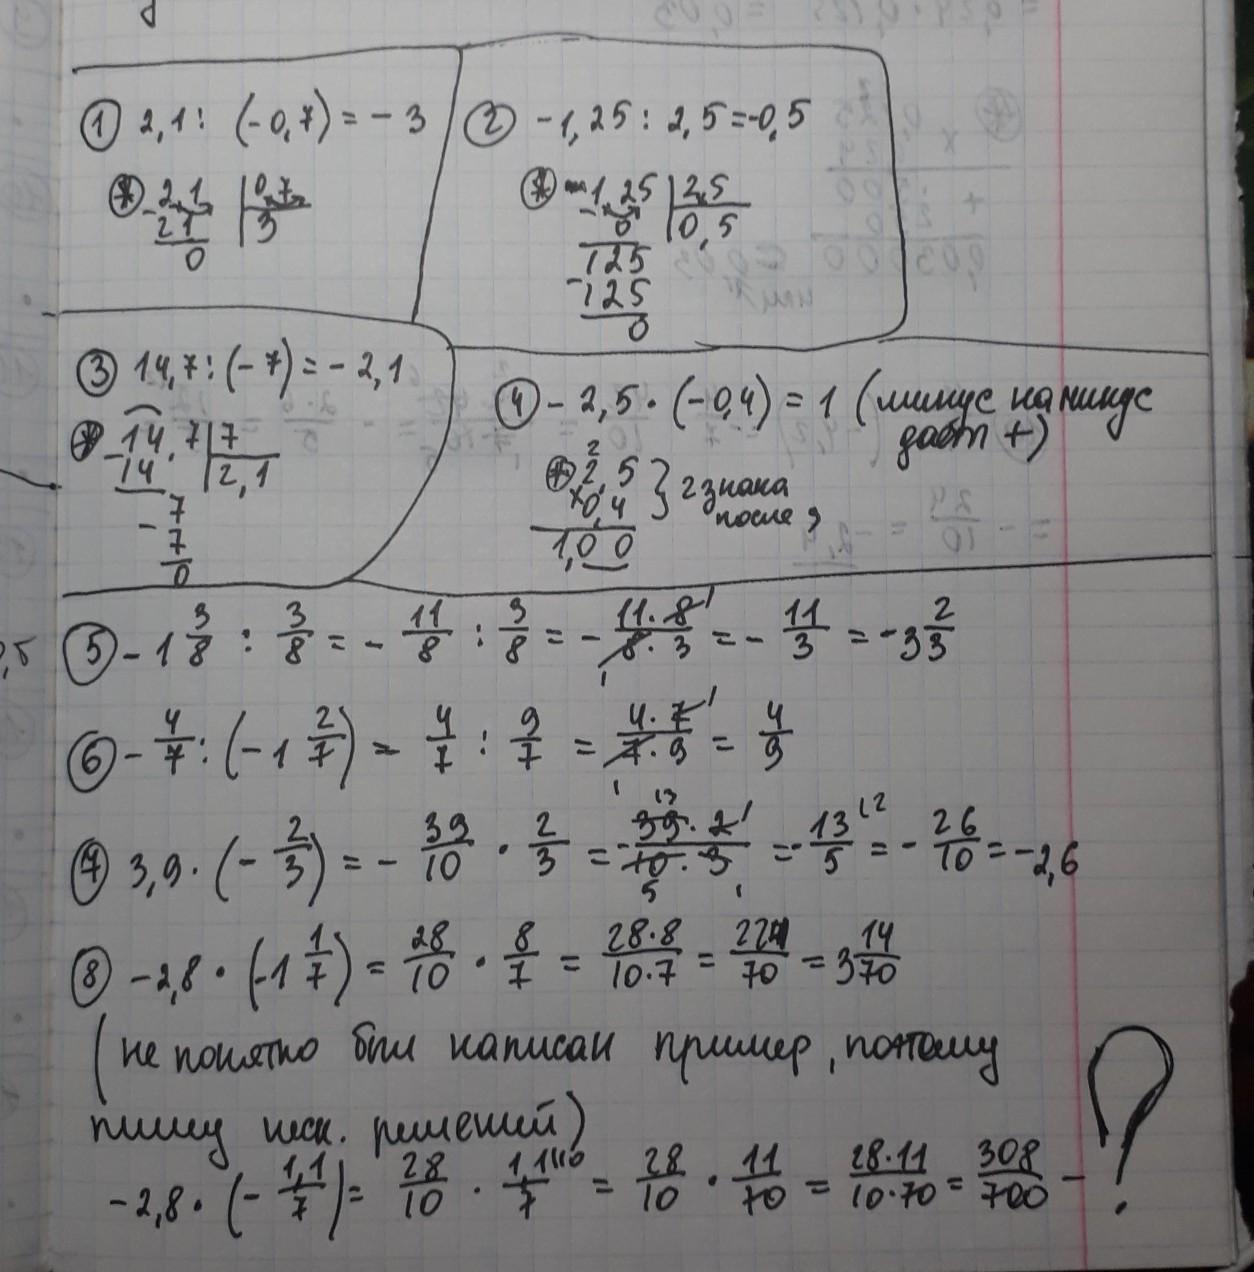 ① 2,1 : (-0,7) = -3
2,1 | 0,7
21 | 3
0
② -1,25 : 2,5 = -0,5
-1,25 | 2,5
0 | 0,5
125
125
0
③ 14,7 : (-7) = -2,1
14,7 | 7
14 | 2,1
7
7
0
④ -2,5 · (-0,4) = 1 (минус на минус
даёт +)
2
2,5
×0,4 } 2 знака
после ,
1,00
⑤ -1 3/8 : 3/8 = - 11/8 : 3/8 = - 11·8/8·3 = - 11/3 = -3 2/3
⑥ - 4/7 : (-1 2/7) = 4/7 : 9/7 = 4·7/7·9 = 4/9
⑦ 3,9 · (- 2/3) = - 39/10 · 2/3 = - 39·2/10·3 = - 13/5 = - 26/10 = -2,6
⑧ -2,8 · (-1 1/7) = 28/10 · 8/7 = 28·8/10·7 = 224/70 = 3 14/70
(не понятно был написан пример, поэтому
пишу неск. решений)
-2,8 · (- 1,1/7) = 28/10 · 1,1/7 = 28/10 · 11/70 = 28·11/10·70 = 308/700 - ?